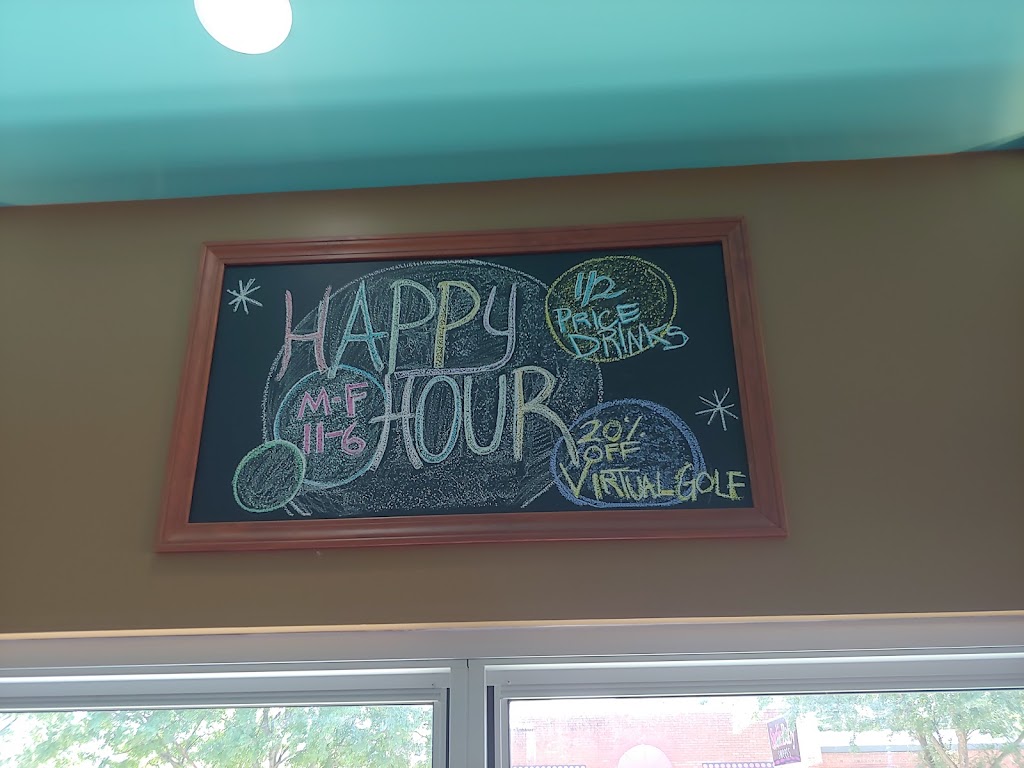 HAPPY
HOUR
M-F
11-6
1/2
PRICE
DRINKS
20%
OFF
VIRTUAL GOLF